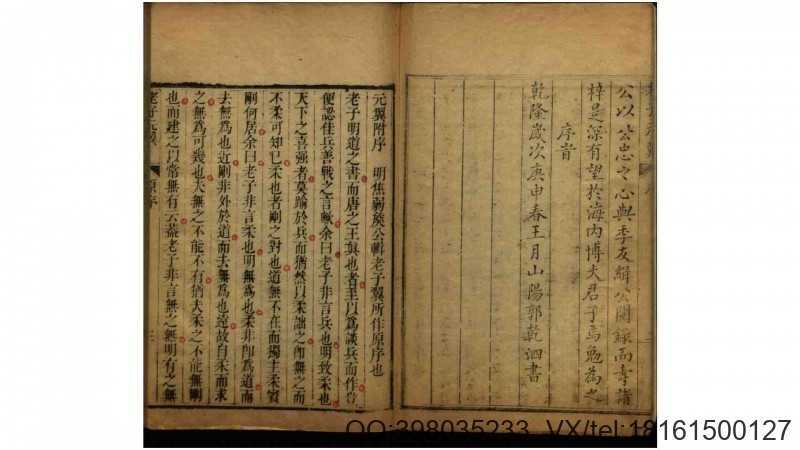 公以公忠之心與季友緝公關錄而壽諸
梓是深有望於海內博大君子焉勉為之
序旹
乾隆歲次庚申春王月山陽郭乾泗書
元翼附序 明焦弱矦公輯老子翼所作原序也
老子明道之書而唐之王眞也者至以爲談兵而作豈
便認佳兵善戰之言歟余曰老子非言兵也明致柔也
天下之喜强者莫踰於兵而猶然以柔詘之卽無之而
不柔可知已柔也者剛之對也道無不在而獨主柔賓
剛何居余曰老子非言柔也明無爲也柔非卽爲道而
去無爲也近剛非外於道而去無爲也遠故自柔而求
之無爲可幾也夫無之不能不有猶夫柔之不能無剛
也而建之以常無有云葢老子非言無之無明有之無
老子元翼 原序
QQ:398035233 VX/tel:18161500127